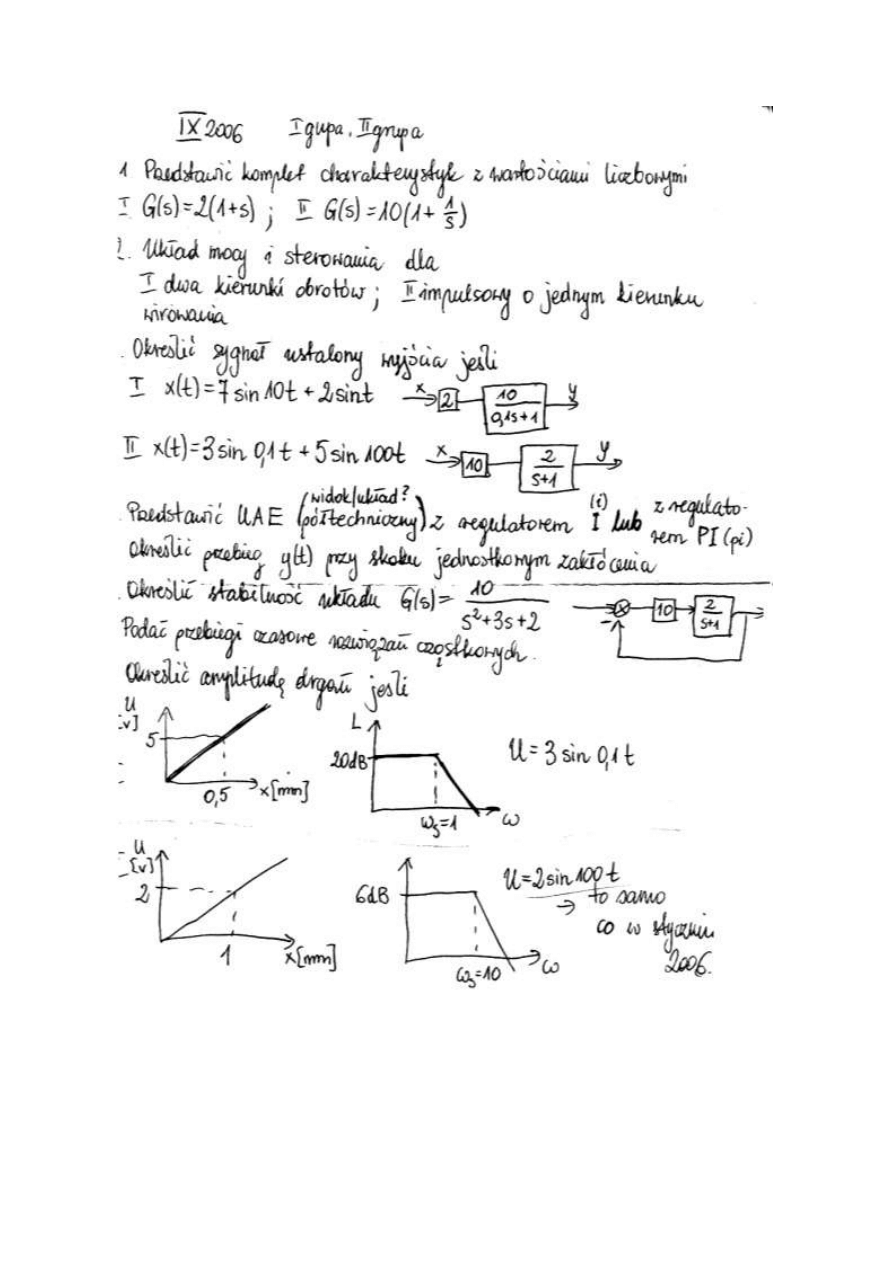 IX 2006 I grupa, II grupa
1 Przedstawić komplet charakterystyk z wartościami liczbowymi
I G(s)=2(1+s) ; II G(s)=10(1+ 1/s)
2. Układ mocy i sterowania dla
I dwa kierunki obrotów ; II impulsowy o jednym kierunku
wirowania
. Określić sygnał ustalony wyjścia jeśli
I x(t)=7 sin 10t + 2 sint x 2 10/0,1s+1 y
II x(t)=3 sin 0,1t + 5 sin 100t x 10 2/s+1 y
(widok/układ?
. Przedstawić UAE (półtechniczny) z regulatorem I (i) lub z regulato-
rem PI (pi)
Określić przebieg y(t) przy skoku jednostkowym zakłócenia
. Określić stabilność układu G(s)= 10/s²+3s+2 - 10 2/s+1
Podać przebiegi czasowe rozwiązań cząstkowych.
Określić amplitudę drgań jeśli
U
[v]
5
0,5 x[mm]
L
20dB
ωs=1 ω
U= 3 sin 0,1t
U
[v]
2
1 x[mm]
6dB
ωs=10 ω
U=2sin 100t
⇒ to samo
co w styczniu
2006.